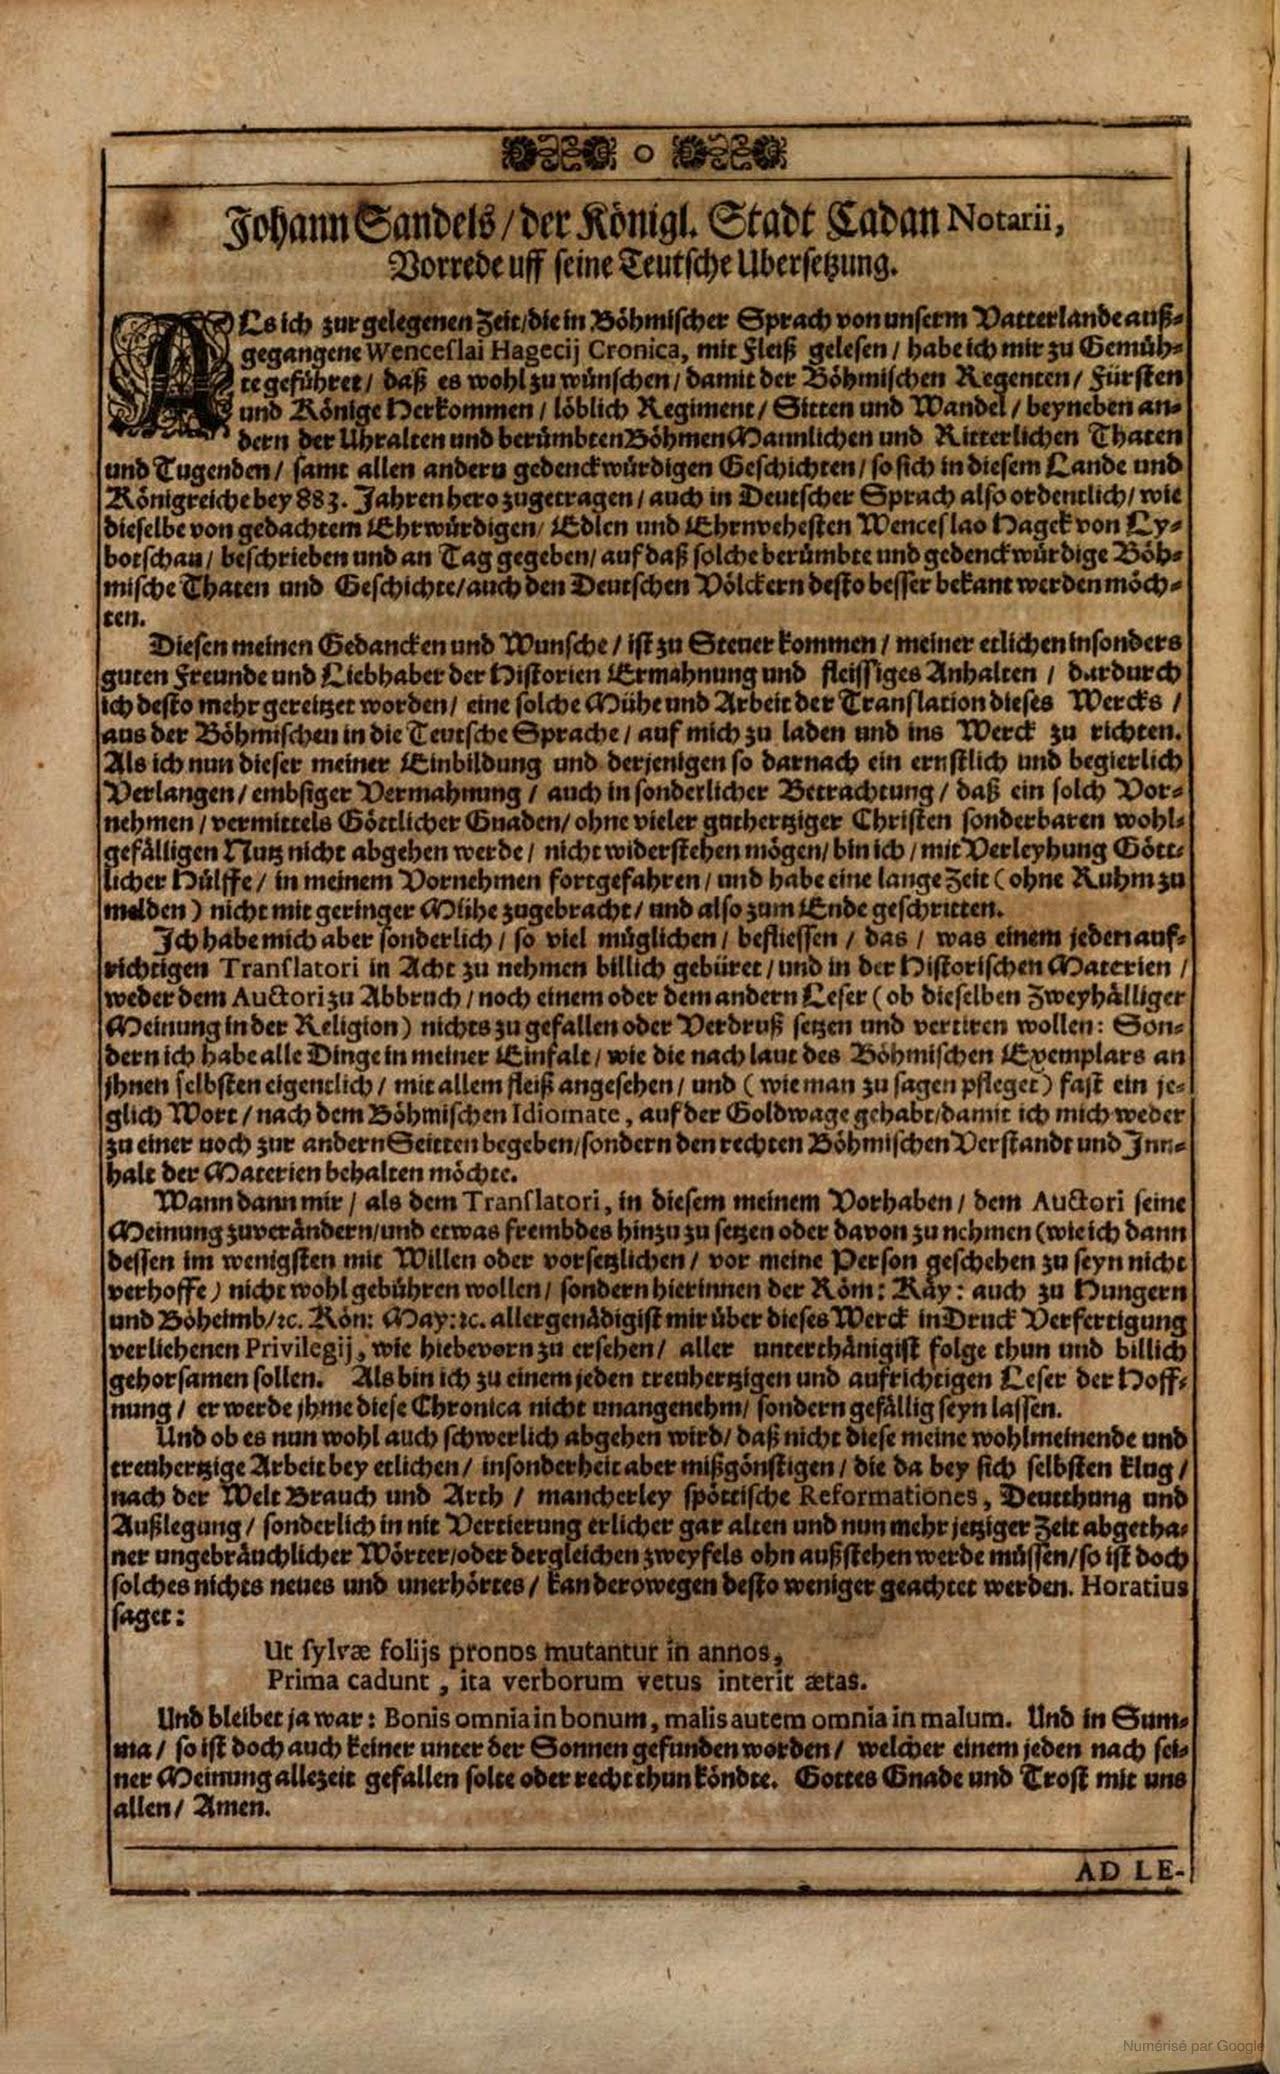 Johann Sandels / der Königl. Stadt Cadan Notarii,
Vorrede uff seine Teutsche Ubersetzung.
ALs ich zur gelegenen Zeit / die in Böhmischer Sprach von unserm Vatterlande auß-
gegangene Wenceslai Hagecij Cronica, mit Fleiß gelesen / habe ich mir zu Gemüh-
te geführet / daß es wohl zu wünschen / damit der Böhmischen Regenten / Fürsten
und Könige Herkommen / löblich Regiment / Sitten und Wandel / beyneben an-
dern der Uhralten und berümbten Böhmen Mannlichen und Ritterlichen Thaten
und Tugenden / samt allen andern gedenckwürdigen Geschichten / so sich in diesem Lande und
Königreiche bey 883. Jahren hero zugetragen / auch in Deutscher Sprach also ordentlich / wie
dieselbe von gedachtem Ehrwürdigen / Edlen und Ehrnvehesten Wenceslao Hagek von Ly-
botschau / beschrieben und an Tag gegeben / auf daß solche berümbte und gedenckwürdige Böh-
mische Thaten und Geschichte / auch den Deutschen Völckern desto besser bekant werden möch-
ten.
Diesen meinen Gedancken und Wunsche / ist zu Steuer kommen / meiner etlichen insonders
guten Freunde und Liebhaber der Historien Ermahnung und fleissiges Anhalten / dardurch
ich desto mehr gereitzet worden / eine solche Mühe und Arbeit der Translation dieses Wercks /
aus der Böhmischen in die Teutsche Sprache / auf mich zu laden und ins Werck zu richten.
Als ich nun dieser meiner Einbildung und derjenigen so darnach ein ernstlich und begierlich
Verlangen / embsiger Vermahnung / auch in sonderlicher Betrachtung / daß ein solch Vor-
nehmen / vermittels Göttlicher Gnaden / ohne vieler guthertziger Christen sonderbaren wohl-
gefälligen Nutz nicht abgehen werde / nicht widerstehen mögen / bin ich / mit Verleyhung Gött-
licher Hülffe / in meinem Vornehmen fortgefahren / und habe eine lange Zeit (ohne Ruhm zu
melden) nicht mit geringer Mühe zugebracht / und also zum Ende geschritten.
Ich habe mich aber sonderlich / so viel müglichen / befliessen / das / was einem jeden auf-
richtigen Translatori in Acht zu nehmen billich gebüret / und in der Historischen Materien /
weder dem Auctori zu Abbruch / noch einem oder dem andern Leser (ob dieselben Zweyhälliger
Meinung in der Religion) nichts zu gefallen oder Verdruß setzen und vertiren wollen: Son-
dern ich habe alle Dinge in meiner Einfalt / wie die nach laut des Böhmischen Exemplars an
jhnen selbsten eigentlich / mit allem fleiß angesehen / und (wie man zu sagen pfleget) fast ein je-
glich Wort / nach dem Böhmischen Idiomate, auf der Goldwage gehabt / damit ich mich weder
zu einer noch zur andern Seitten begeben / sondern den rechten Böhmischen Verstandt und Inn-
halt der Materien behalten möchte.
Wann dann mir / als dem Translatori, in diesem meinem Vorhaben / dem Auctori seine
Meinung zuverändern / und etwas frembdes hinzu zu setzen oder davon zu nehmen (wie ich dann
dessen im wenigsten mit Willen oder vorsetzlichen / vor meine Person geschehen zu seyn nicht
verhoffe) nicht wohl gebühren wollen / sondern hierinnen der Röm: Käy: auch zu Hungern
und Böheimb / ꝛc. Kön: May: ꝛc. allergenädigist mir über dieses Werck in Druck Verfertigung
verliehenen Privilegij, wie hiebevorn zu ersehen / aller unterthänigist folge thun und billich
gehorsamen sollen. Als bin ich zu einem jeden treuhertzigen und aufrichtigen Leser der Hoff-
nung / er werde jhme diese Chronica nicht unangenehm / sondern gefällig seyn lassen.
Und ob es nun wohl auch schwerlich abgehen wird / daß nicht diese meine wohlmeinende und
treuhertzige Arbeit bey etlichen / insonderheit aber mißgönstigen / die da bey sich selbsten klug /
nach der Welt Brauch und Arth / mancherley spöttische Reformationes, Deutthung und
Außlegung / sonderlich in nit Vertierung etlicher gar alten und nun mehr jetziger Zeit abgetha-
ner ungebräuchlicher Wörter / oder dergleichen zweyfels ohn außstehen werde müssen / so ist doch
solches nichts neues und unerhörtes / kan derowegen desto weniger geachtet werden. Horatius
saget:
Ut sylvæ folijs pronos mutantur in annos,
Prima cadunt, ita verborum vetus interit ætas.
Und bleibet ja war: Bonis omnia in bonum, malis autem omnia in malum. Und in Sum-
ma / so ist doch auch keiner unter der Sonnen gefunden worden / welcher einem jeden nach sei-
ner Meinung allezeit gefallen solte oder recht thun köndte. Gottes Gnade und Trost mit uns
allen / Amen.
AD LE-
Numérisé par Google